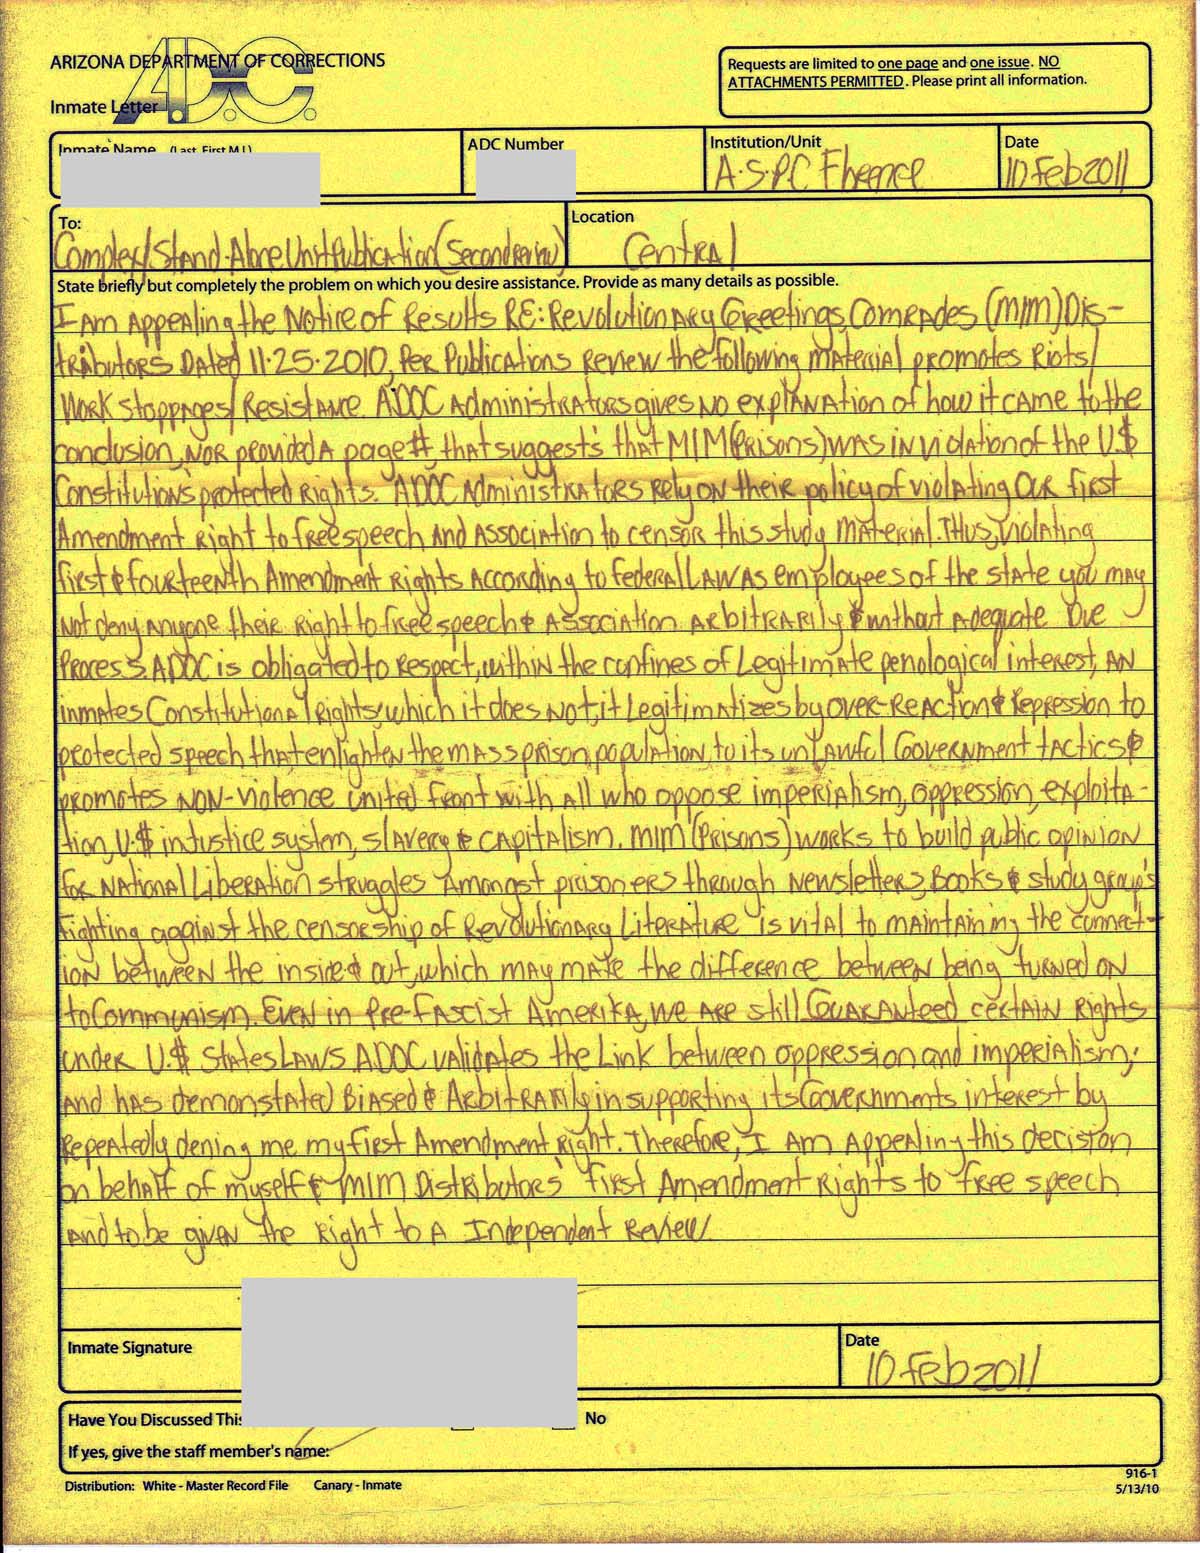 ARIZONA DEPARTMENT OF CORRECTIONS
A.D.C.
Inmate Letter
Requests are limited to one page and one issue. NO
ATTACHMENTS PERMITTED. Please print all information.
Inmate Name (Last, First M.I.)
ADC Number
Institution/Unit
A.S.P.C Florence
Date
10 Feb 2011
To:
Complex/Stand-Alone Unit Publication (Second Review)
Location
Central
State briefly but completely the problem on which you desire assistance. Provide as many details as possible.
I Am Appealing the Notice of Results RE: Revolutionary Greetings, Comrades (MIM) Dis-
tributors Dated 11.25.2010, Per Publications Review the following material promotes Riots/
Work stoppages/Resistance. ADOC Administrators gives no explanation of how it came to the
conclusion, nor provided a page #, that suggests that MIM(Prisons) was in violation of the U.$
Constitution's protected Rights. ADOC Administrators rely on their policy of violating our first
Amendment Right to free speech and Association to censor this study material. Thus, violating
first & fourteenth Amendment Rights According to federal Law As employees of the state you may
not deny anyone their Right to free speech & Association Arbitrarily & without Adequate Due
Process. ADOC is obligated to respect, within the confines of Legitimate penological interest, an
inmates Constitutional Rights, which it does not, it Legitimatizes by over-reaction & Repression to
protected speech that enlighten the mass prison population, to its unlawful Government tactics &
promotes non-violence united front with all who oppose imperialism, oppression, exploita-
tion, U.$ injustice system, slavery & capitalism. MIM (Prisons) works to build public opinion
for National Liberation struggles Amongst prisoners through Newsletters, Books & study group's
Fighting against the censorship of Revolutionary Literature is vital to maintaining the connect-
ion between the inside & out, which may make the difference between being turned on
to Communism. Even in Pre-Fascist Amerika, we are still Guaranteed certain Rights
under U.$ States Laws. ADOC validates the Link between oppression and imperialism;
And has demonstated Biased & Arbitrarily in supporting its Governments interest by
Repeatedly dening me my first Amendment Right. Therefore, I Am Appealing this decision
on behalf of myself & MIM Distributors' first Amendment Rights to free speech
and to be given the Right to A Independent Review.
Inmate Signature
Date
10 Feb 2011
Have You Discussed This
No
If yes, give the staff member's name:
Distribution: White - Master Record File Canary - Inmate
916-1
5/13/10